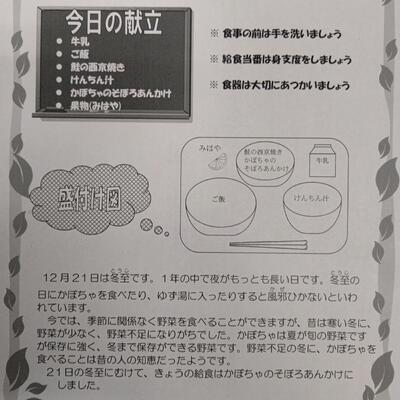 今日の献立
● 牛乳
● ご飯
● 鮭の西京焼き
● けんちん汁
● かぼちゃのそぼろあんかけ
● 果物(みはや)
※ 食事の前は手を洗いましょう
※ 給食当番は身支度をしましょう
※ 食器は大切にあつかいましょう
盛付け図
みはや
鮭の西京焼き
かぼちゃの
そぼろあんかけ
牛乳
ご飯
けんちん汁
12月21日は冬至です。1年の中で夜がもっとも長い日です。冬至の
日にかぼちゃを食べたり、ゆず湯に入ったりすると風邪ひかないといわ
れています。
今では、季節に関係なく野菜を食べることができますが、昔は寒い冬に、
野菜が少なく、野菜不足になりがちでした。かぼちゃは夏が旬の野菜です
が保存に強く、冬まで保存ができる野菜です。野菜不足の冬に、かぼちゃを
食べることは昔の人の知恵だったようです。
21日の冬至にむけて、きょうの給食はかぼちゃのそぼろあんかけに
しました。